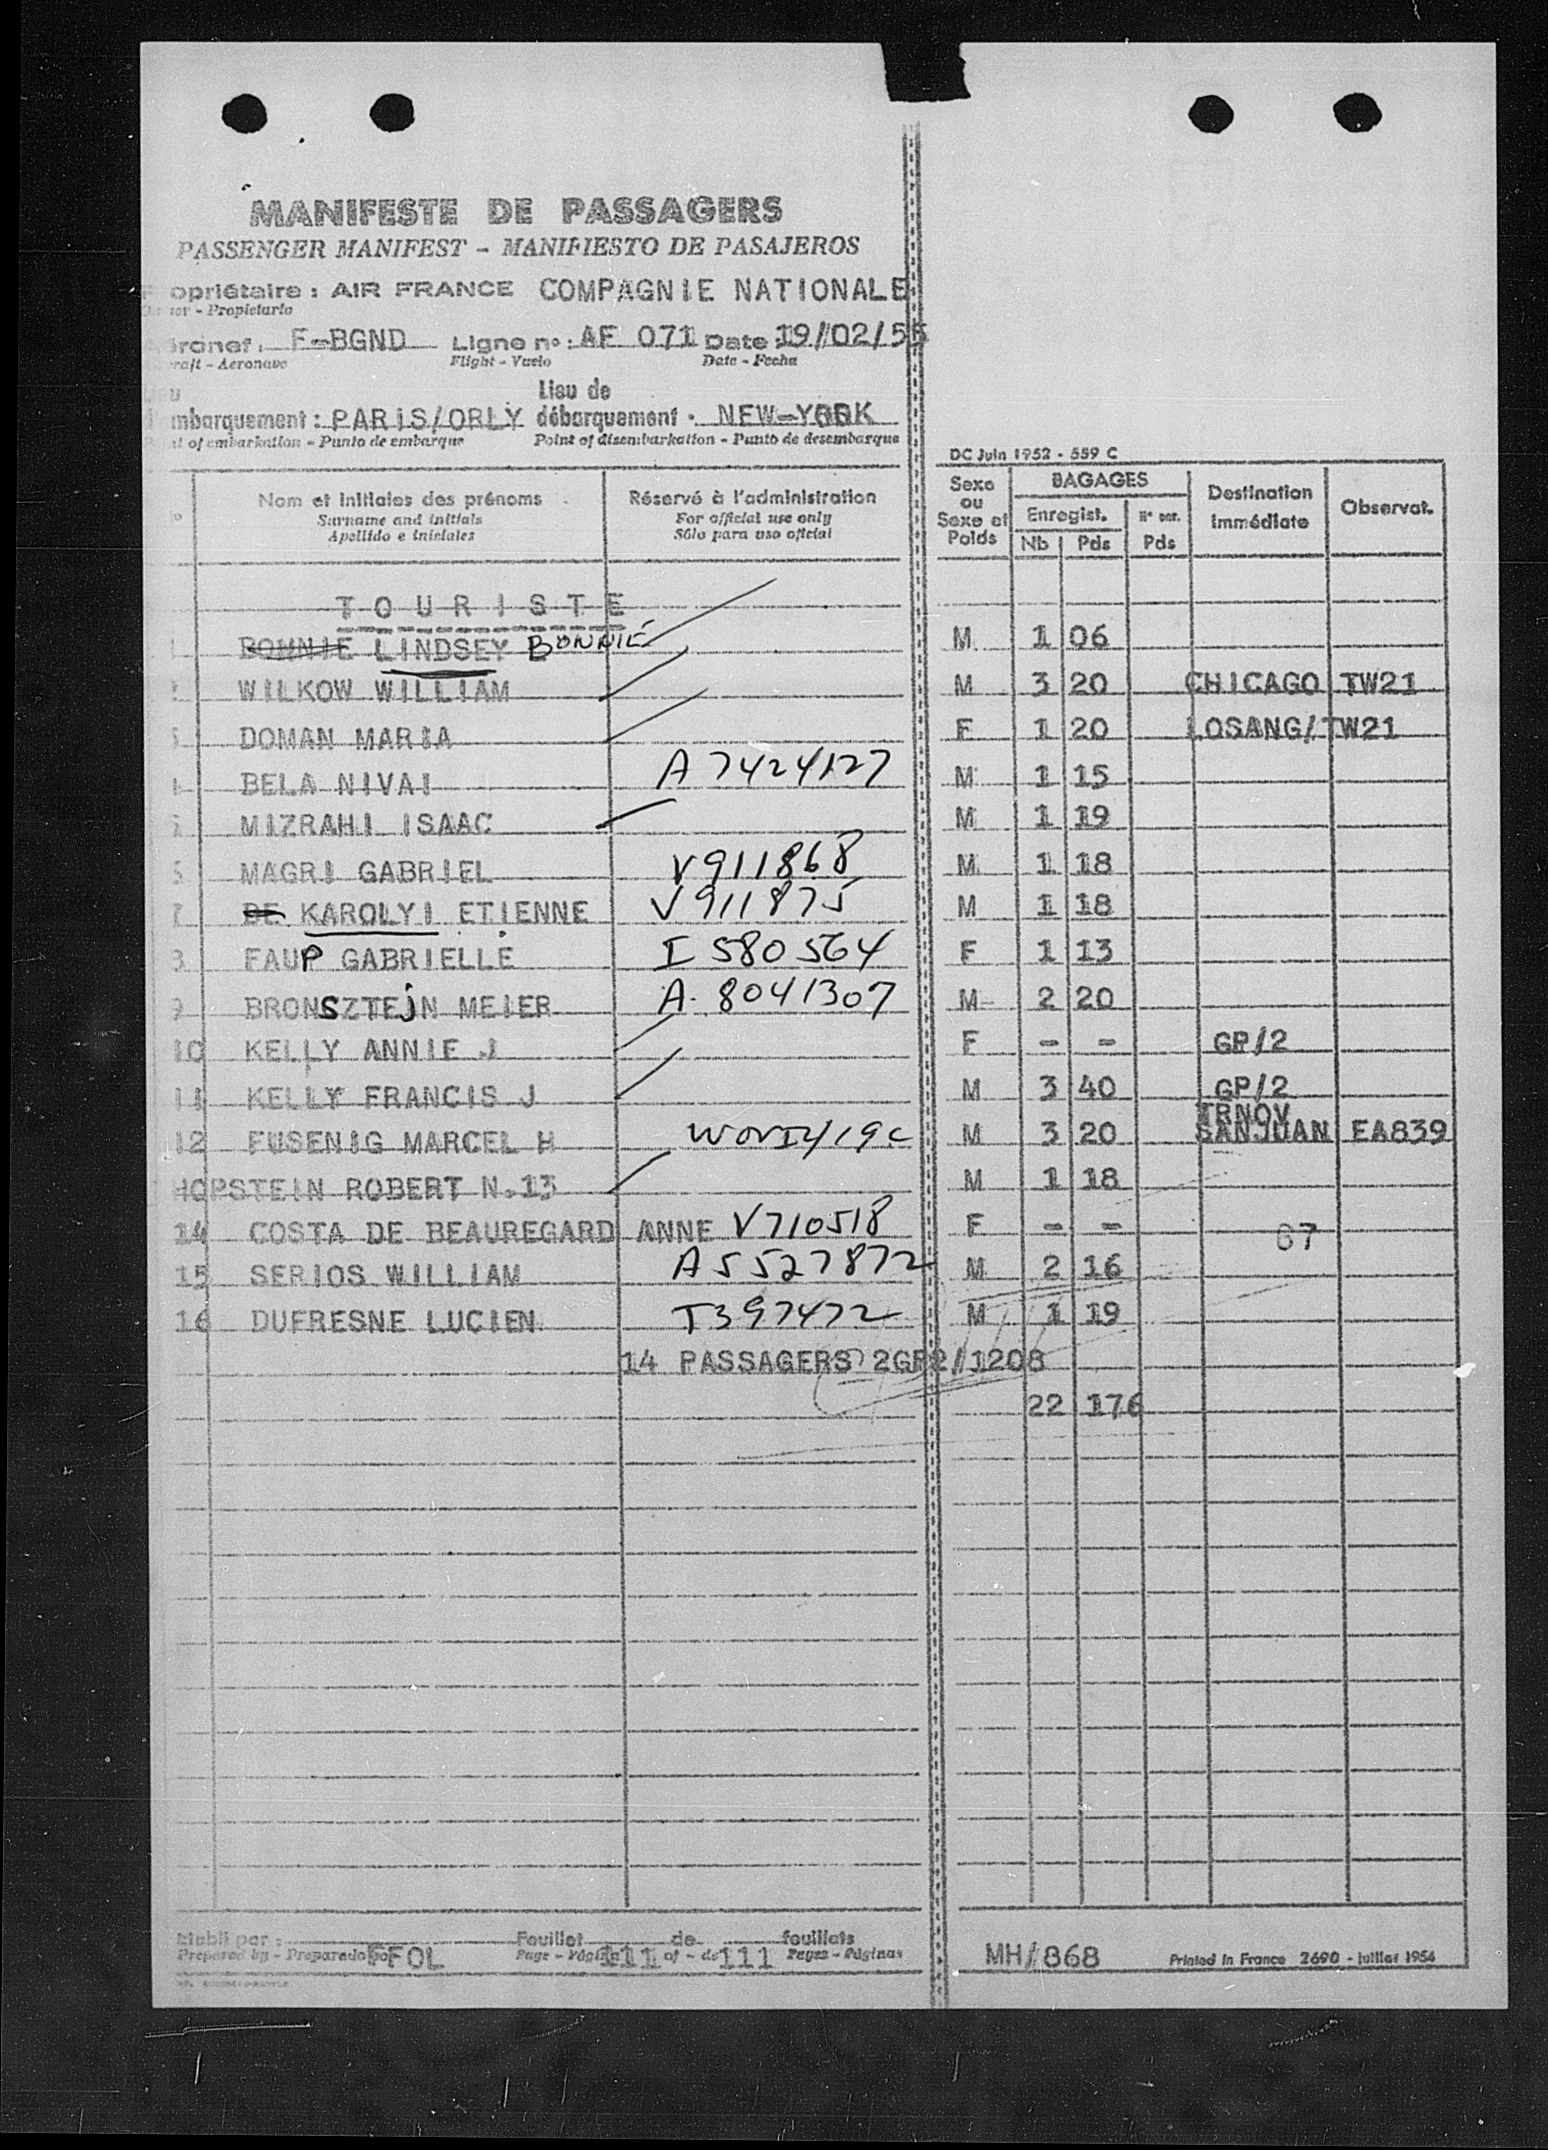 MANIFESTE DE PASSAGERS
PASSENGER MANIFEST - MANIFIESTO DE PASAJEROS
opriétaire : AIR FRANCE COMPAGNIE NATIONALE
- Propietario
F-BGND Ligne n° : AF 071 Date : 19/02/55
- Aeronave Flight - Vuelo Date - Fecha
Lieu de
mbarquement : PARIS/ORLY débarquement · NEW-YORK
of embarkation - Punto de embarque Point of disembarkation - Punto de desembarque
DC Juin 1952 - 559 C
Nom et initiales des prénoms Réservé à l'administration Sexe ou Sexe et Poids BAGAGES Destination immédiate Observat.
Surname and initials For official use only Enregist. Nb Pds Pds
Apellido e iniciales Sólo para uso oficial
TOURISTE
BOHNIE LINDSEY BONNIE M 1 06
WILKOW WILLIAM M 3 20 CHICAGO TW21
DOMAN MARIA F 1 20 LOSANG/TW21
BELA NIVAI A 7424127 M 1 15
MIZRAHI ISAAC M 1 19
MAGRI GABRIEL V911868 M 1 18
7 DE KAROLYI ETIENNE V911875 M 1 18
FAUP GABRIELLE I 580564 F 1 13
9 BRONSZTEjN MEIER A- 8041307 M 2 20
10 KELLY ANNIE J F - - GP/2
11 KELLY FRANCIS J M 3 40 GP/2
TRNOV
12 FUSENIG MARCEL H M 3 20 SANJUAN EA839
HOPSTEIN ROBERT N.13 M 1 18
14 COSTA DE BEAUREGARD ANNE V710518 F - - 67
15 SERIOS WILLIAM A5527872 M 2 16
16 DUFRESNE LUCIEN T397472 M 1 19
14 PASSAGERS 2GP2//1208
22 176
Etabli par : Feuillet de feuillets
Prepared by - Preparado por FFOL Page - Página 111 of - de 111 Pages - Páginas
MH/868 Printed in France 2690 - juillet 1954